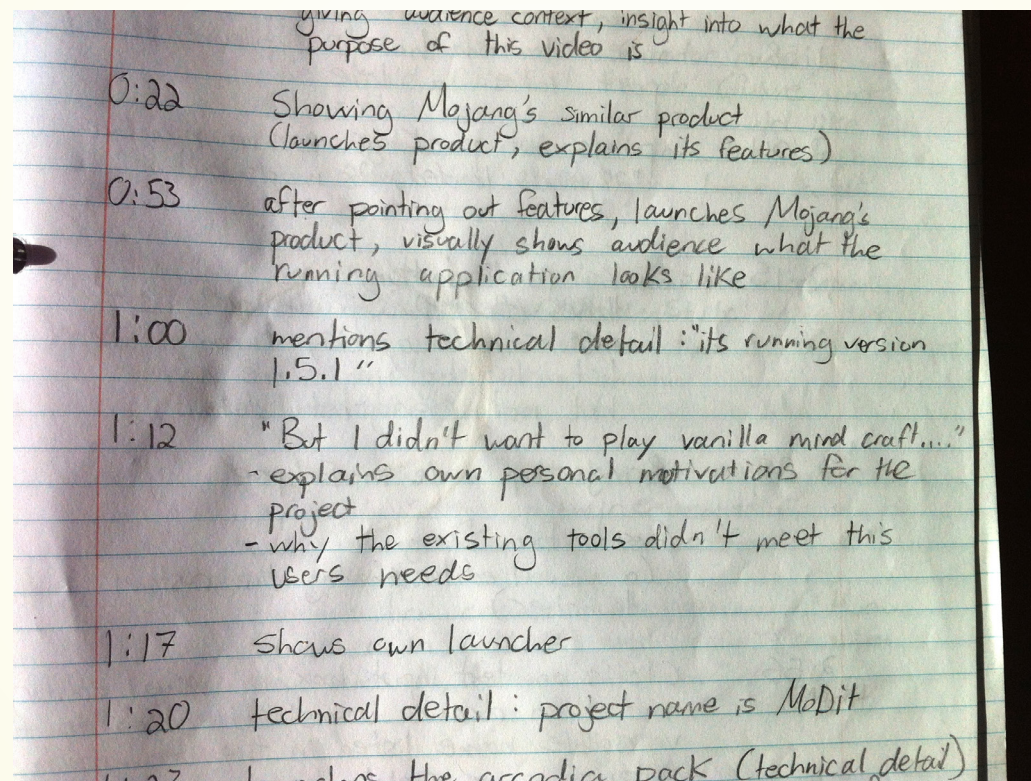 giving audience context, insight into what the
purpose of this video is
0:22 Showing Mojang's similar product
(launches product, explains its features)
0:53 after pointing out features, launches Mojang's
product, visually shows audience what the
running application looks like
1:00 mentions technical detail : "its running version
1.5.1"
1:12 "But I didn't want to play vanilla mind craft...."
- explains own personal motivations for the
project
- why the existing tools didn't meet this
users needs
1:17 Shows own launcher
1:20 technical detail : project name is MoDit
the arcadia pack (technical detail)